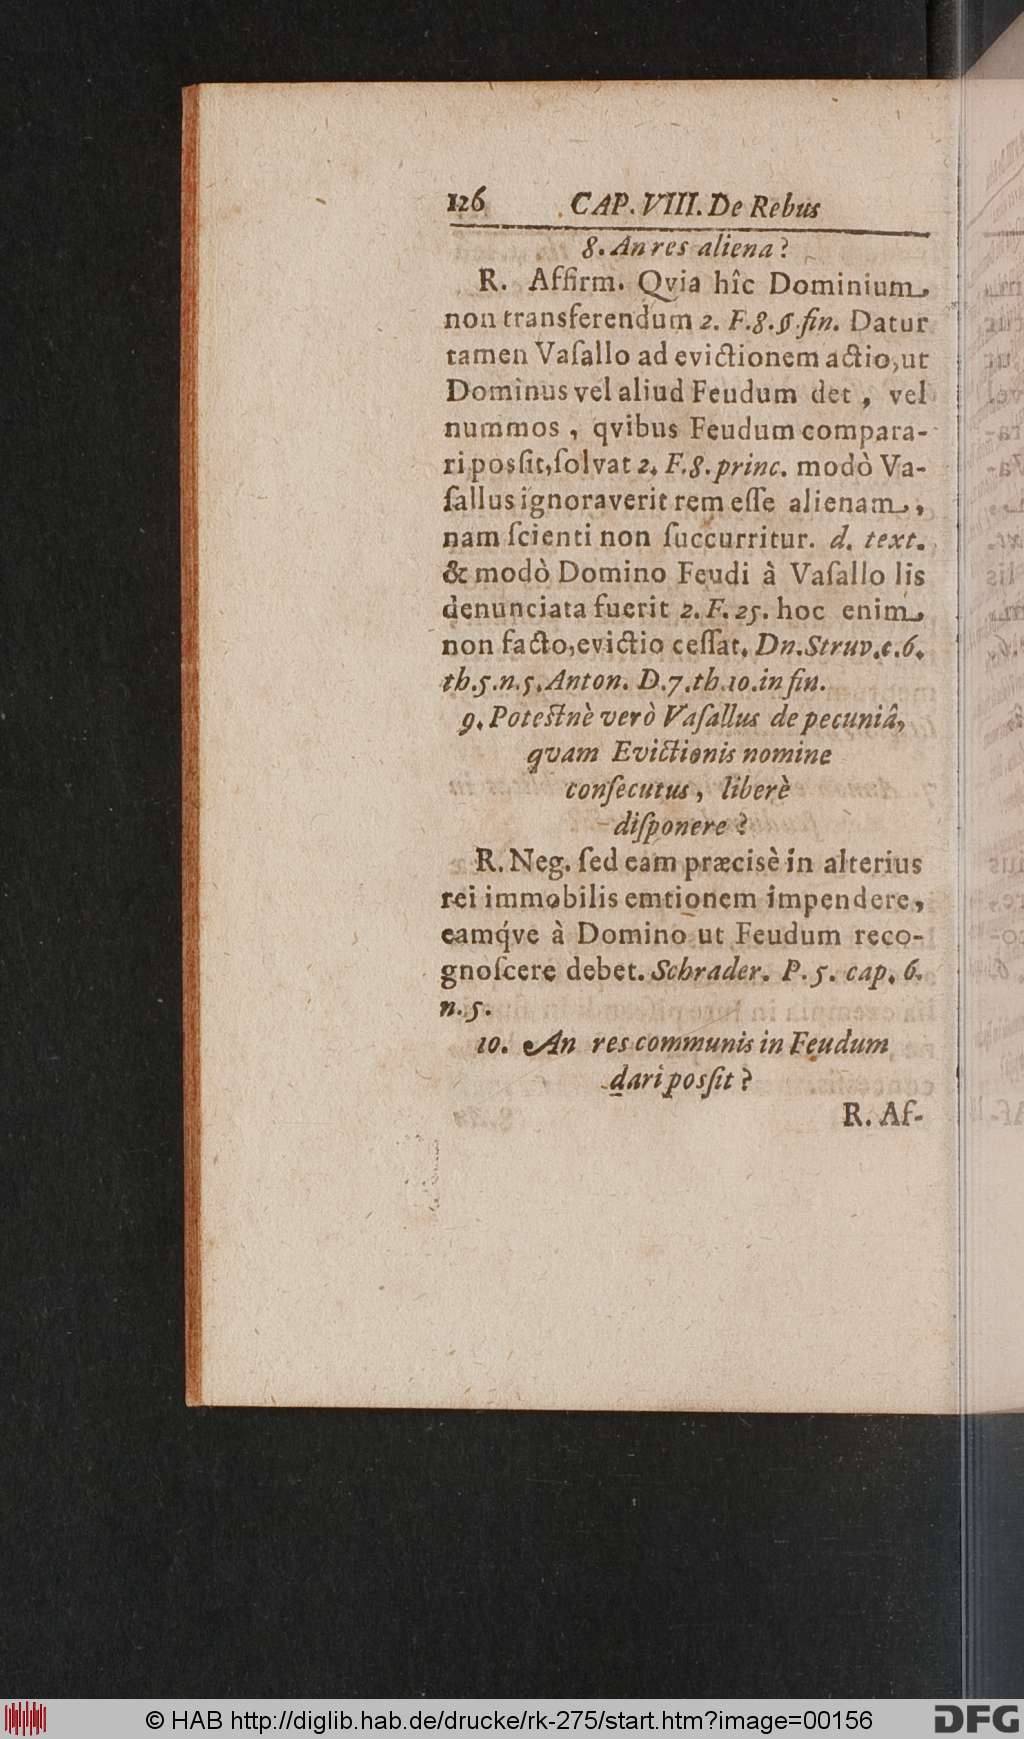 126 CAP. VIII. De Rebus
8. An res aliena?
R. Affirm. Qvia hîc Dominium
non transferendum 2. F. 8. §. fin. Datur
tamen Vaſallo ad evictionem actio, ut
Dominus vel aliud Feudum det, vel
nummos, qvibus Feudum compara-
ri posſit, ſolvat 2. F. 8. princ. modò Va-
ſallus ignoraverit rem eſſe alienam,
nam ſcienti non ſuccurritur. d. text.
& modò Domino Feudi à Vaſallo lis
denunciata fuerit 2. F. 25. hoc enim
non facto, evictio ceſſat. Dn. Struv. c. 6.
th. 5. n. 5. Anton. D. 7. th. 10. in fin.
9. Poteſtnè verò Vaſallus de pecuniâ,
qvam Evictionis nomine
conſecutus, liberè
diſponere?
R. Neg. ſed eam præcisè in alterius
rei immobilis emtionem impendere,
eamq́ve à Domino ut Feudum reco-
gnoſcere debet. Schrader. P. 5. cap. 6.
n. 5.
10. An res communis in Feudum
dari posſit?
R. Af-
© HAB http://diglib.hab.de/drucke/rk-275/start.htm?image=00156
DFG